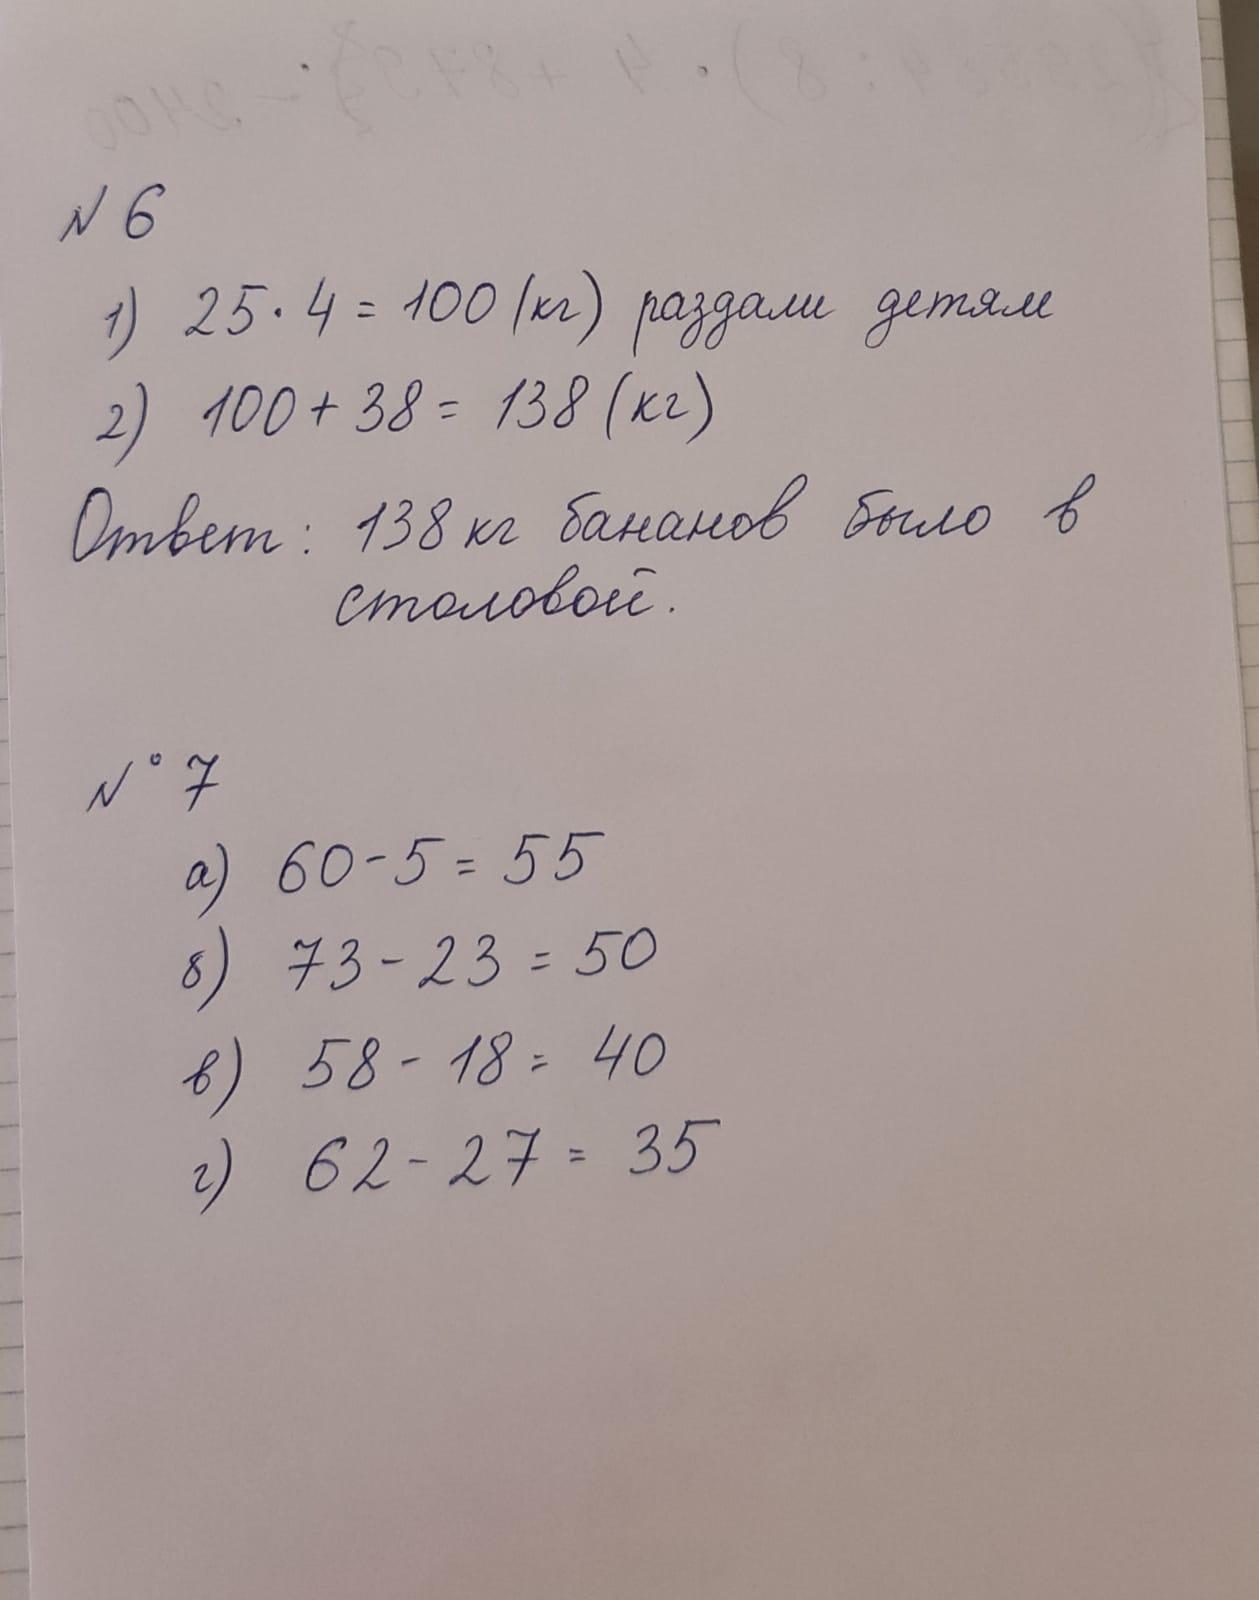 N 6
1) 25 · 4 = 100 (кг) раздали детям
2) 100 + 38 = 138 (кг)
Ответ: 138 кг бананов было в
столовой.
N° 7
а) 60 - 5 = 55
б) 73 - 23 = 50
в) 58 - 18 = 40
г) 62 - 27 = 35